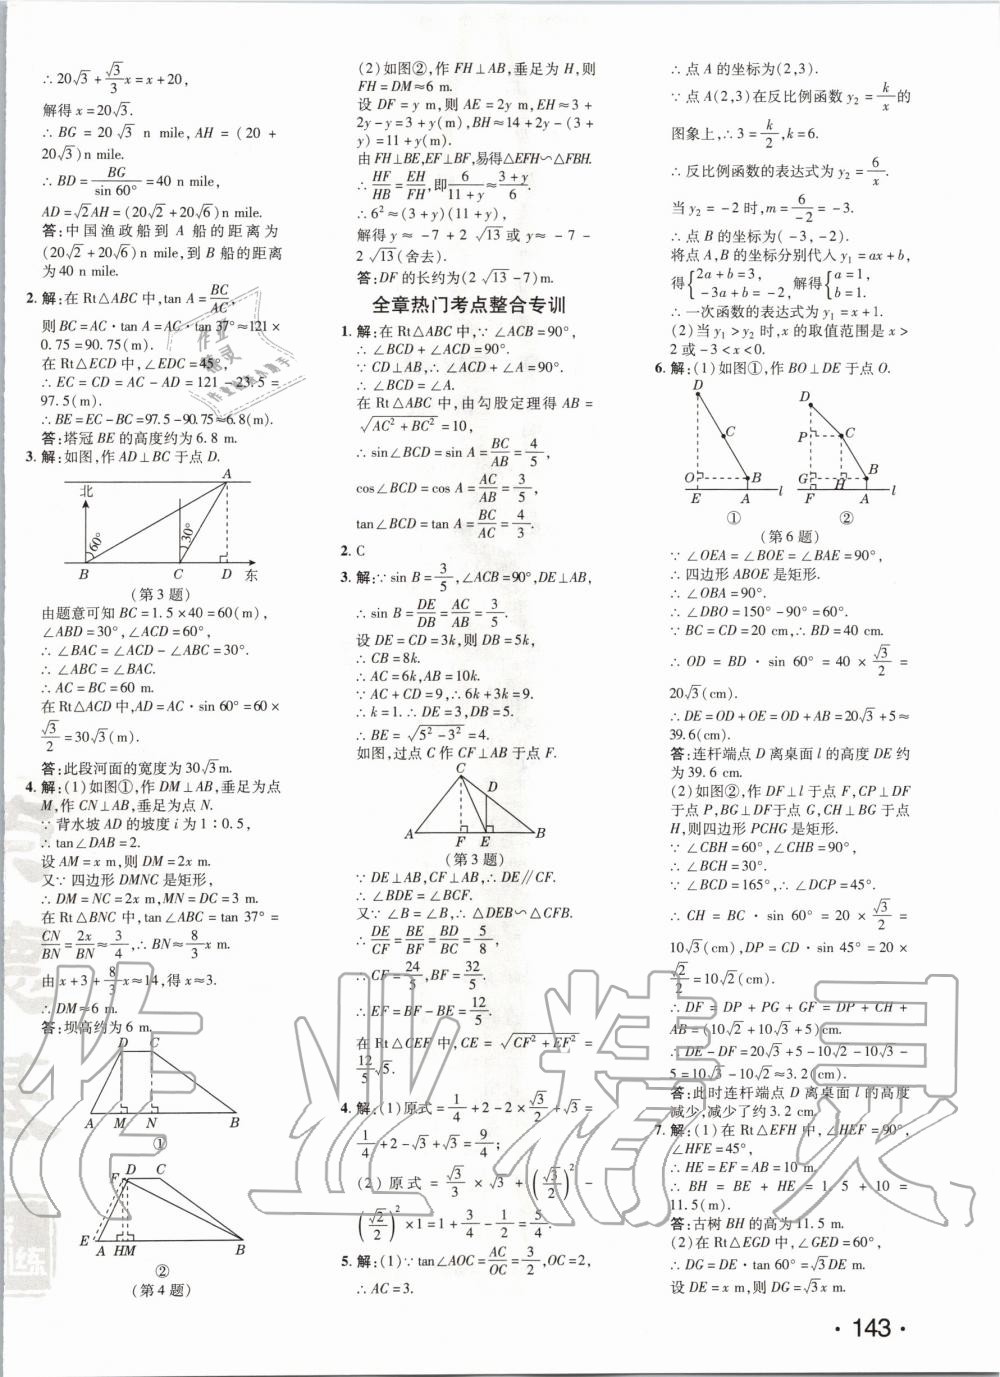 ∴20√3+√3/3x=x+20,
解得x=20√3.
∴BG=20√3 n mile,AH=(20+
20√3)n mile.
∴BD=BG/sin 60°=40 n mile,
AD=√2AH=(20√2+20√6)n mile.
答:中国渔政船到 A 船的距离为
(20√2+20√6)n mile,到 B 船的距离
为40 n mile.
2. 解:在Rt△ABC中,tan A=BC/AC,
则BC=AC·tan A=AC·tan 37°≈121×
0.75=90.75(m).
在Rt△ECD中,∠EDC=45°,
∴EC=CD=AC-AD=121-23.5=
97.5(m).
∴BE=EC-BC=97.5-90.75≈6.8(m).
答:塔冠BE的高度约为6.8 m.
3. 解:如图,作AD⊥BC于点D.
北 A
60° 30°
B C D 东
(第3题)
由题意可知BC=1.5×40=60(m),
∠ABD=30°,∠ACD=60°,
∴∠BAC=∠ACD-∠ABC=30°.
∴∠BAC=∠ABC.
∴AC=BC=60 m.
在Rt△ACD中,AD=AC·sin 60°=60×
√3/2=30√3(m).
答:此段河面的宽度为30√3m.
4. 解:(1)如图①,作DM⊥AB,垂足为点
M,作CN⊥AB,垂足为点N.
∵背水坡AD的坡度i为1∶0.5,
∴tan∠DAB=2.
设AM=x m,则DM=2x m.
又∵四边形DMNC是矩形,
∴DM=NC=2x m,MN=DC=3 m.
在Rt△BNC中,tan∠ABC=tan 37°=
CN/BN=2x/BN≈3/4,∴BN≈8/3x m.
由x+3+8/3x≈14,得x≈3.
∴DM≈6 m.
答:坝高约为6 m.
D C
A M N B
①
F D C
E A HM B
②
(第4题)
(2)如图②,作FH⊥AB,垂足为H,则
FH=DM≈6 m.
设DF=y m,则AE=2y m,EH≈3+
2y-y=3+y(m),BH≈14+2y-(3+
y)=11+y(m).
由FH⊥BE,EF⊥BF,易得△EFH∽△FBH.
∴HF/HB=EH/FH,即6/(11+y)≈(3+y)/6.
∴6²≈(3+y)(11+y),
解得y≈-7+2√13或y≈-7-
2√13(舍去).
答:DF的长约为(2√13-7)m.
全章热门考点整合专训
1. 解:在Rt△ABC中,∵∠ACB=90°,
∴∠BCD+∠ACD=90°.
∵CD⊥AB,∴∠ACD+∠A=90°.
∴∠BCD=∠A.
在Rt△ABC中,由勾股定理得AB=
√(AC²+BC²)=10,
∴sin∠BCD=sin A=BC/AB=4/5,
cos∠BCD=cos A=AC/AB=3/5,
tan∠BCD=tan A=BC/AC=4/3.
2. C
3. 解:∵sin B=3/5,∠ACB=90°,DE⊥AB,
∴sin B=DE/DB=AC/AB=3/5.
设DE=CD=3k,则DB=5k.
∴CB=8k.
∴AC=6k,AB=10k.
∵AC+CD=9,∴6k+3k=9.
∴k=1.∴DE=3,DB=5.
∴BE=√(5²-3²)=4.
如图,过点C作CF⊥AB于点F.
C
D
A F E B
(第3题)
∵DE⊥AB,CF⊥AB,∴DE∥CF.
∴∠BDE=∠BCF.
又∵∠B=∠B,∴△DEB∽△CFB.
∴DE/CF=BE/BF=BD/BC=5/8,
∴CF=24/5,BF=32/5.
∴EF=BF-BE=12/5.
在Rt△CEF中,CE=√(CF²+EF²)=
12/5√5.
4. 解:(1)原式=1/4+2-2×√3/2+√3=
1/4+2-√3+√3=9/4;
(2)原式=√3/3×√3+(√3/2)²-
(√2/2)²×1=1+3/4-1/2=5/4.
5. 解:(1)∵tan∠AOC=AC/OC=3/2,OC=2,
∴AC=3.
∴点A的坐标为(2,3).
∵点A(2,3)在反比例函数y₂=k/x的
图象上,∴3=k/2,k=6.
∴反比例函数的表达式为y₂=6/x.
当y₂=-2时,m=6/-2=-3.
∴点B的坐标为(-3,-2).
将点A,B的坐标分别代入y₁=ax+b,
得{2a+b=3, -3a+b=-2, 解得{a=1, b=1.
∴一次函数的表达式为y₁=x+1.
(2)当y₁>y₂时,x的取值范围是x>
2或-3<x<0.
6. 解:(1)如图①,作BO⊥DE于点O.
D C O B E A l
①
D P C G B F H A l
②
(第6题)
∵∠OEA=∠BOE=∠BAE=90°,
∴四边形ABOE是矩形.
∴∠OBA=90°.
∴∠DBO=150°-90°=60°.
∵BC=CD=20 cm,∴BD=40 cm.
∴OD=BD·sin 60°=40×√3/2=
20√3(cm).
∴DE=OD+OE=OD+AB=20√3+5≈
39.6(cm).
答:连杆端点D离桌面l的高度DE约
为39.6 cm.
(2)如图②,作DF⊥l于点F,CP⊥DF
于点P,BG⊥DF于点G,CH⊥BG于点
H,则四边形PCHG是矩形.
∵∠CBH=60°,∠CHB=90°,
∴∠BCH=30°.
∵∠BCD=165°,∴∠DCP=45°.
∴CH=BC·sin 60°=20×√3/2=
10√3(cm),DP=CD·sin 45°=20×
√2/2=10√2(cm).
∴DF=DP+PG+GF=DP+CH+
AB=(10√2+10√3+5)cm.
∴DE-DF=20√3+5-10√2-10√3-
5=10√3-10√2≈3.2(cm).
答:此时连杆端点D离桌面l的高度
减少,减少了约3.2 cm.
7. 解:(1)在Rt△EFH中,∠HEF=90°,
∠HFE=45°,
∴HE=EF=AB=10 m.
∴BH=BE+HE=1.5+10=
11.5(m).
答:古树BH的高为11.5 m.
(2)在Rt△EGD中,∠GED=60°,
∴DG=DE·tan 60°=√3DE m.
设DE=x m,则DG=√3x m.
·143·
作业精灵